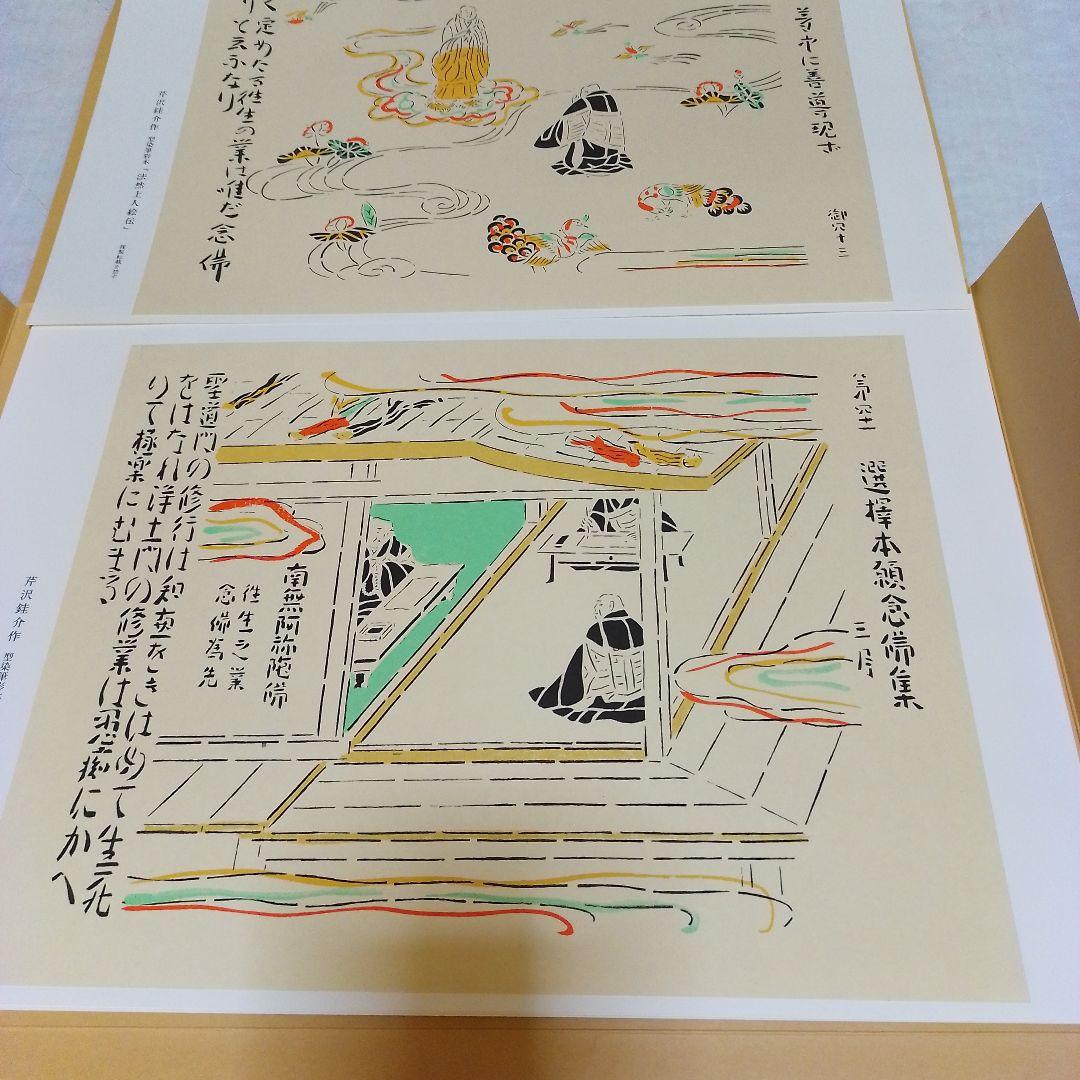 夢中に善導現ず
御穴十三
く定めたる往生の業は唯だ念佛
りと云ふなり
芹沢銈介作 型染筆彩本「法然上人絵伝」 複製転載を禁ず
選擇本願念佛集
三月
南無阿弥陀佛
往生之業
念佛為先
聖道門の修行は知恵をきはめて生死
をはなれ浄土門の修業は愚痴にかへ
りて極楽にむまる
芹沢銈介作 型染筆彩